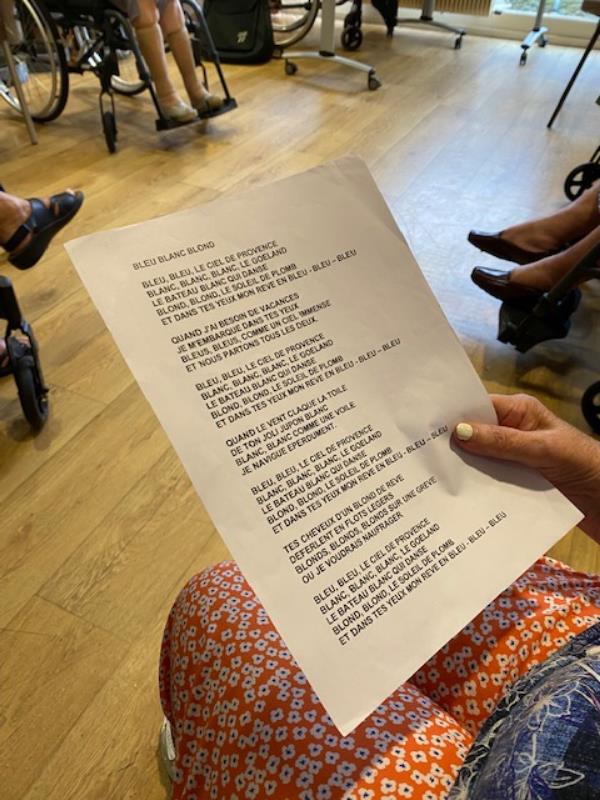 BLEU BLANC BLOND
BLEU, BLEU, LE CIEL DE PROVENCE
BLANC, BLANC, BLANC, LE GOELAND
LE BATEAU BLANC QUI DANSE
BLOND, BLOND, LE SOLEIL DE PLOMB
ET DANS TES YEUX MON REVE EN BLEU - BLEU – BLEU
QUAND J'AI BESOIN DE VACANCES
JE M'EMBARQUE DANS TES YEUX
BLEUS, BLEUS, COMME UN CIEL IMMENSE
ET NOUS PARTONS TOUS LES DEUX.
BLEU, BLEU, LE CIEL DE PROVENCE
BLANC, BLANC, BLANC, LE GOELAND
LE BATEAU BLANC QUI DANSE
BLOND, BLOND, LE SOLEIL DE PLOMB
ET DANS TES YEUX MON REVE EN BLEU - BLEU – BLEU
QUAND LE VENT CLAQUE LA TOILE
DE TON JOLI JUPON BLANC
BLANC, BLANC COMME UNE VOILE
JE NAVIGUE EPERDUMENT.
BLEU, BLEU, LE CIEL DE PROVENCE
BLANC, BLANC, BLANC, LE GOELAND
LE BATEAU BLANC QUI DANSE
BLOND, BLOND, LE SOLEIL DE PLOMB
ET DANS TES YEUX MON REVE EN BLEU - BLEU – BLEU
TES CHEVEUX D'UN BLOND DE REVE
DEFERLENT EN FLOTS LEGERS
BLONDS, BLONDS, BLONDS SUR UNE GREVE
OU JE VOUDRAIS NAUFRAGER
BLEU, BLEU, LE CIEL DE PROVENCE
BLANC, BLANC, BLANC, LE GOELAND
LE BATEAU BLANC QUI DANSE
BLOND, BLOND, LE SOLEIL DE PLOMB
ET DANS TES YEUX MON REVE EN BLEU - BLEU – BLEU